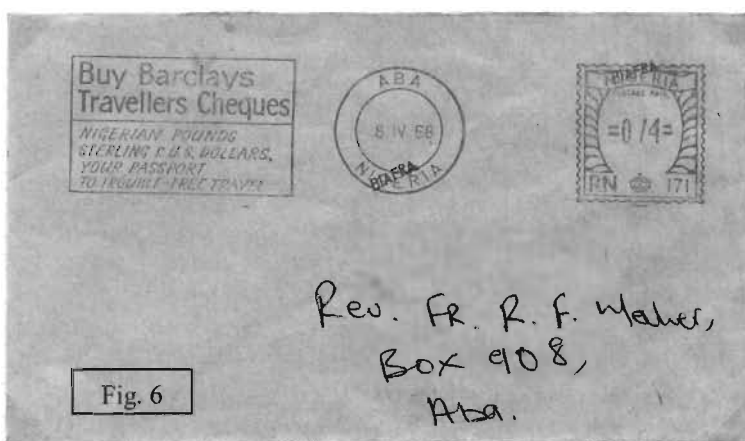 Buy Barclays
Travellers Cheques
NIGERIAN POUNDS
STERLING & U.S. DOLLARS,
YOUR PASSPORT
TO TROUBLE-FREE TRAVEL
ABA
8 IV 68
NIGERIA
BIAFRA
BIAFRA
NIGERIA
=0/4=
RN 171
Rev. FR. R. F. Maher,
Box 908,
Aba.
Fig. 6